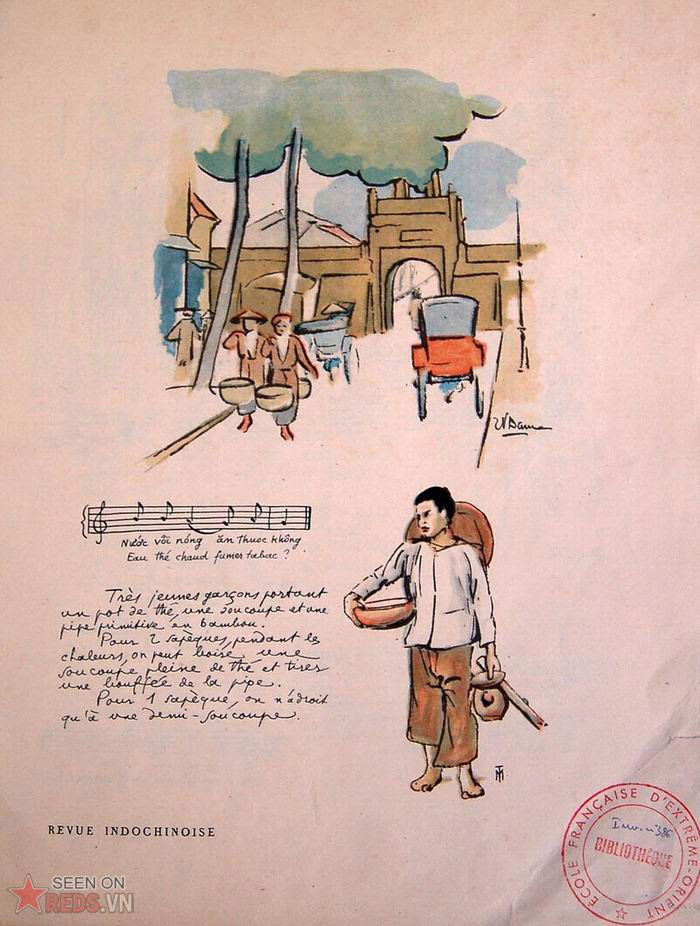 Nước vôi nóng ăn thuoc không
Eau thé chaud fumer tabac ?
Très jeunes garçons portant
un pot de thé, une soucoupe et une
pipe primitive en bambou.
Pour 2 sapèques, pendant les
chaleurs, on peut boire une
soucoupe pleine de thé et tirer
une bouffée de la pipe.
Pour 1 sapèque, on n'a droit
qu'à une demi-soucoupe.
REVUE INDOCHINOISE
ÉCOLE FRANÇAISE D'EXTRÊME-ORIENT
Inv. n° 386
BIBLIOTHÈQUE
SEEN ON
REDS.VN